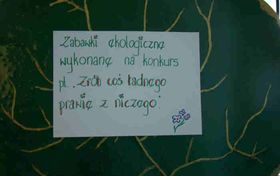 Zabawki ekologiczne
wykonane na konkurs
pt. „Zrób coś ładnego
prawie z niczego"